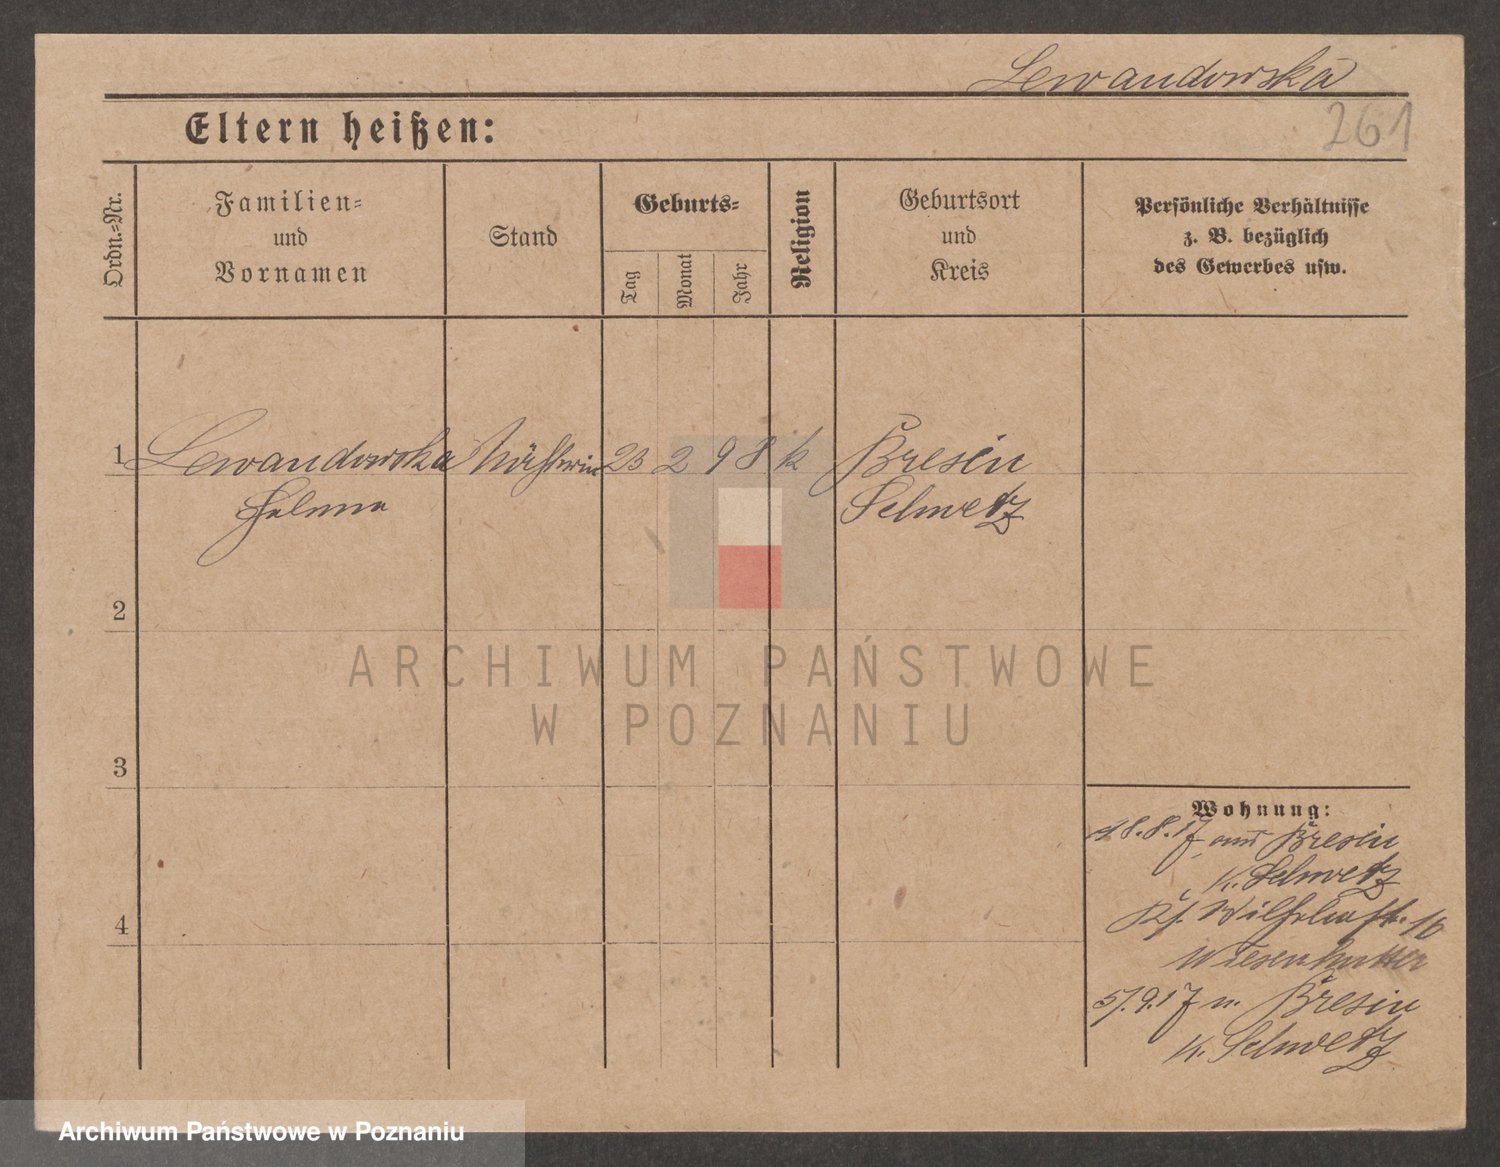 Lewandowska
261
Eltern heißen:
Ordn.-Nr.
Familien-
und
Vornamen
Stand
Geburts-
Tag
Monat
Jahr
Religion
Geburtsort
und
Kreis
Persönliche Verhältnisse
z. B. bezüglich
des Gewerbes usw.
1 Lewandowska Nähterin 23 2 98 k Bresin
Helene Schwetz
2
3
4
Wohnung:
8.8.17 aus Bresin
K. Schwetz
Wilhelmstr. 16
5/9.17 n. Bresin
K. Schwetz
ARCHIWUM PAŃSTWOWE
W POZNANIU
Archiwum Państwowe w Poznaniu